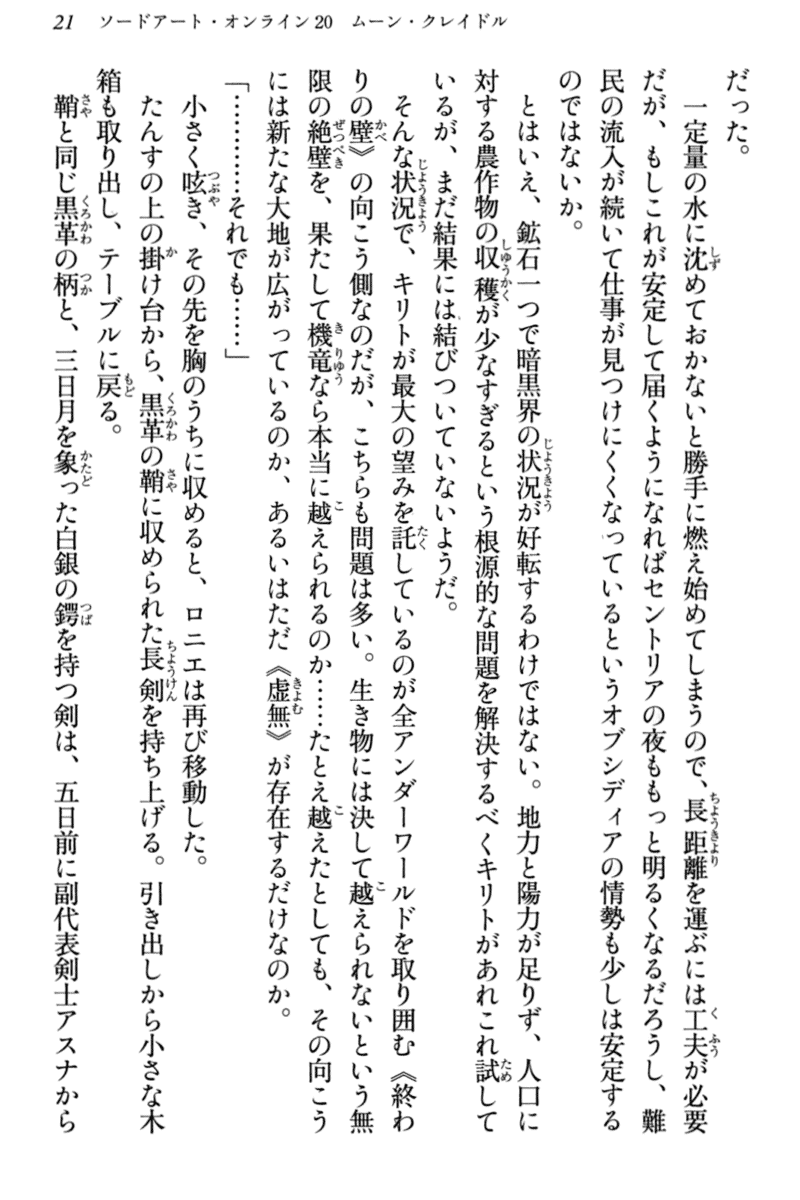 21 ソードアート・オンライン20 ムーン・クレイドル
だった。
　一定量の水に沈めておかないと勝手に燃え始めてしまうので、長距離を運ぶには工夫が必要
だが、もしこれが安定して届くようになればセントリアの夜ももっと明るくなるだろうし、難
民の流入が続いて仕事が見つけにくくなっているというオブシディアの情勢も少しは安定する
のではないか。
　とはいえ、鉱石一つで暗黒界の状況が好転するわけではない。地力と陽力が足りず、人口に
対する農作物の収穫が少なすぎるという根源的な問題を解決するべくキリトがあれこれ試して
いるが、まだ結果には結びついていないようだ。
　そんな状況で、キリトが最大の望みを託しているのが全アンダーワールドを取り囲む《終わ
りの壁》の向こう側なのだが、こちらも問題は多い。生き物には決して越えられないという無
限の絶壁を、果たして機竜なら本当に越えられるのか……たとえ越えたとしても、その向こう
には新たな大地が広がっているのか、あるいはただ《虚無》が存在するだけなのか。
「…………それでも……」
　小さく呟き、その先を胸のうちに収めると、ロニエは再び移動した。
　たんすの上の掛け台から、黒革の鞘に収められた長剣を持ち上げる。引き出しから小さな木
箱も取り出し、テーブルに戻る。
　鞘と同じ黒革の柄と、三日月を象った白銀の鍔を持つ剣は、五日前に副代表剣士アスナから